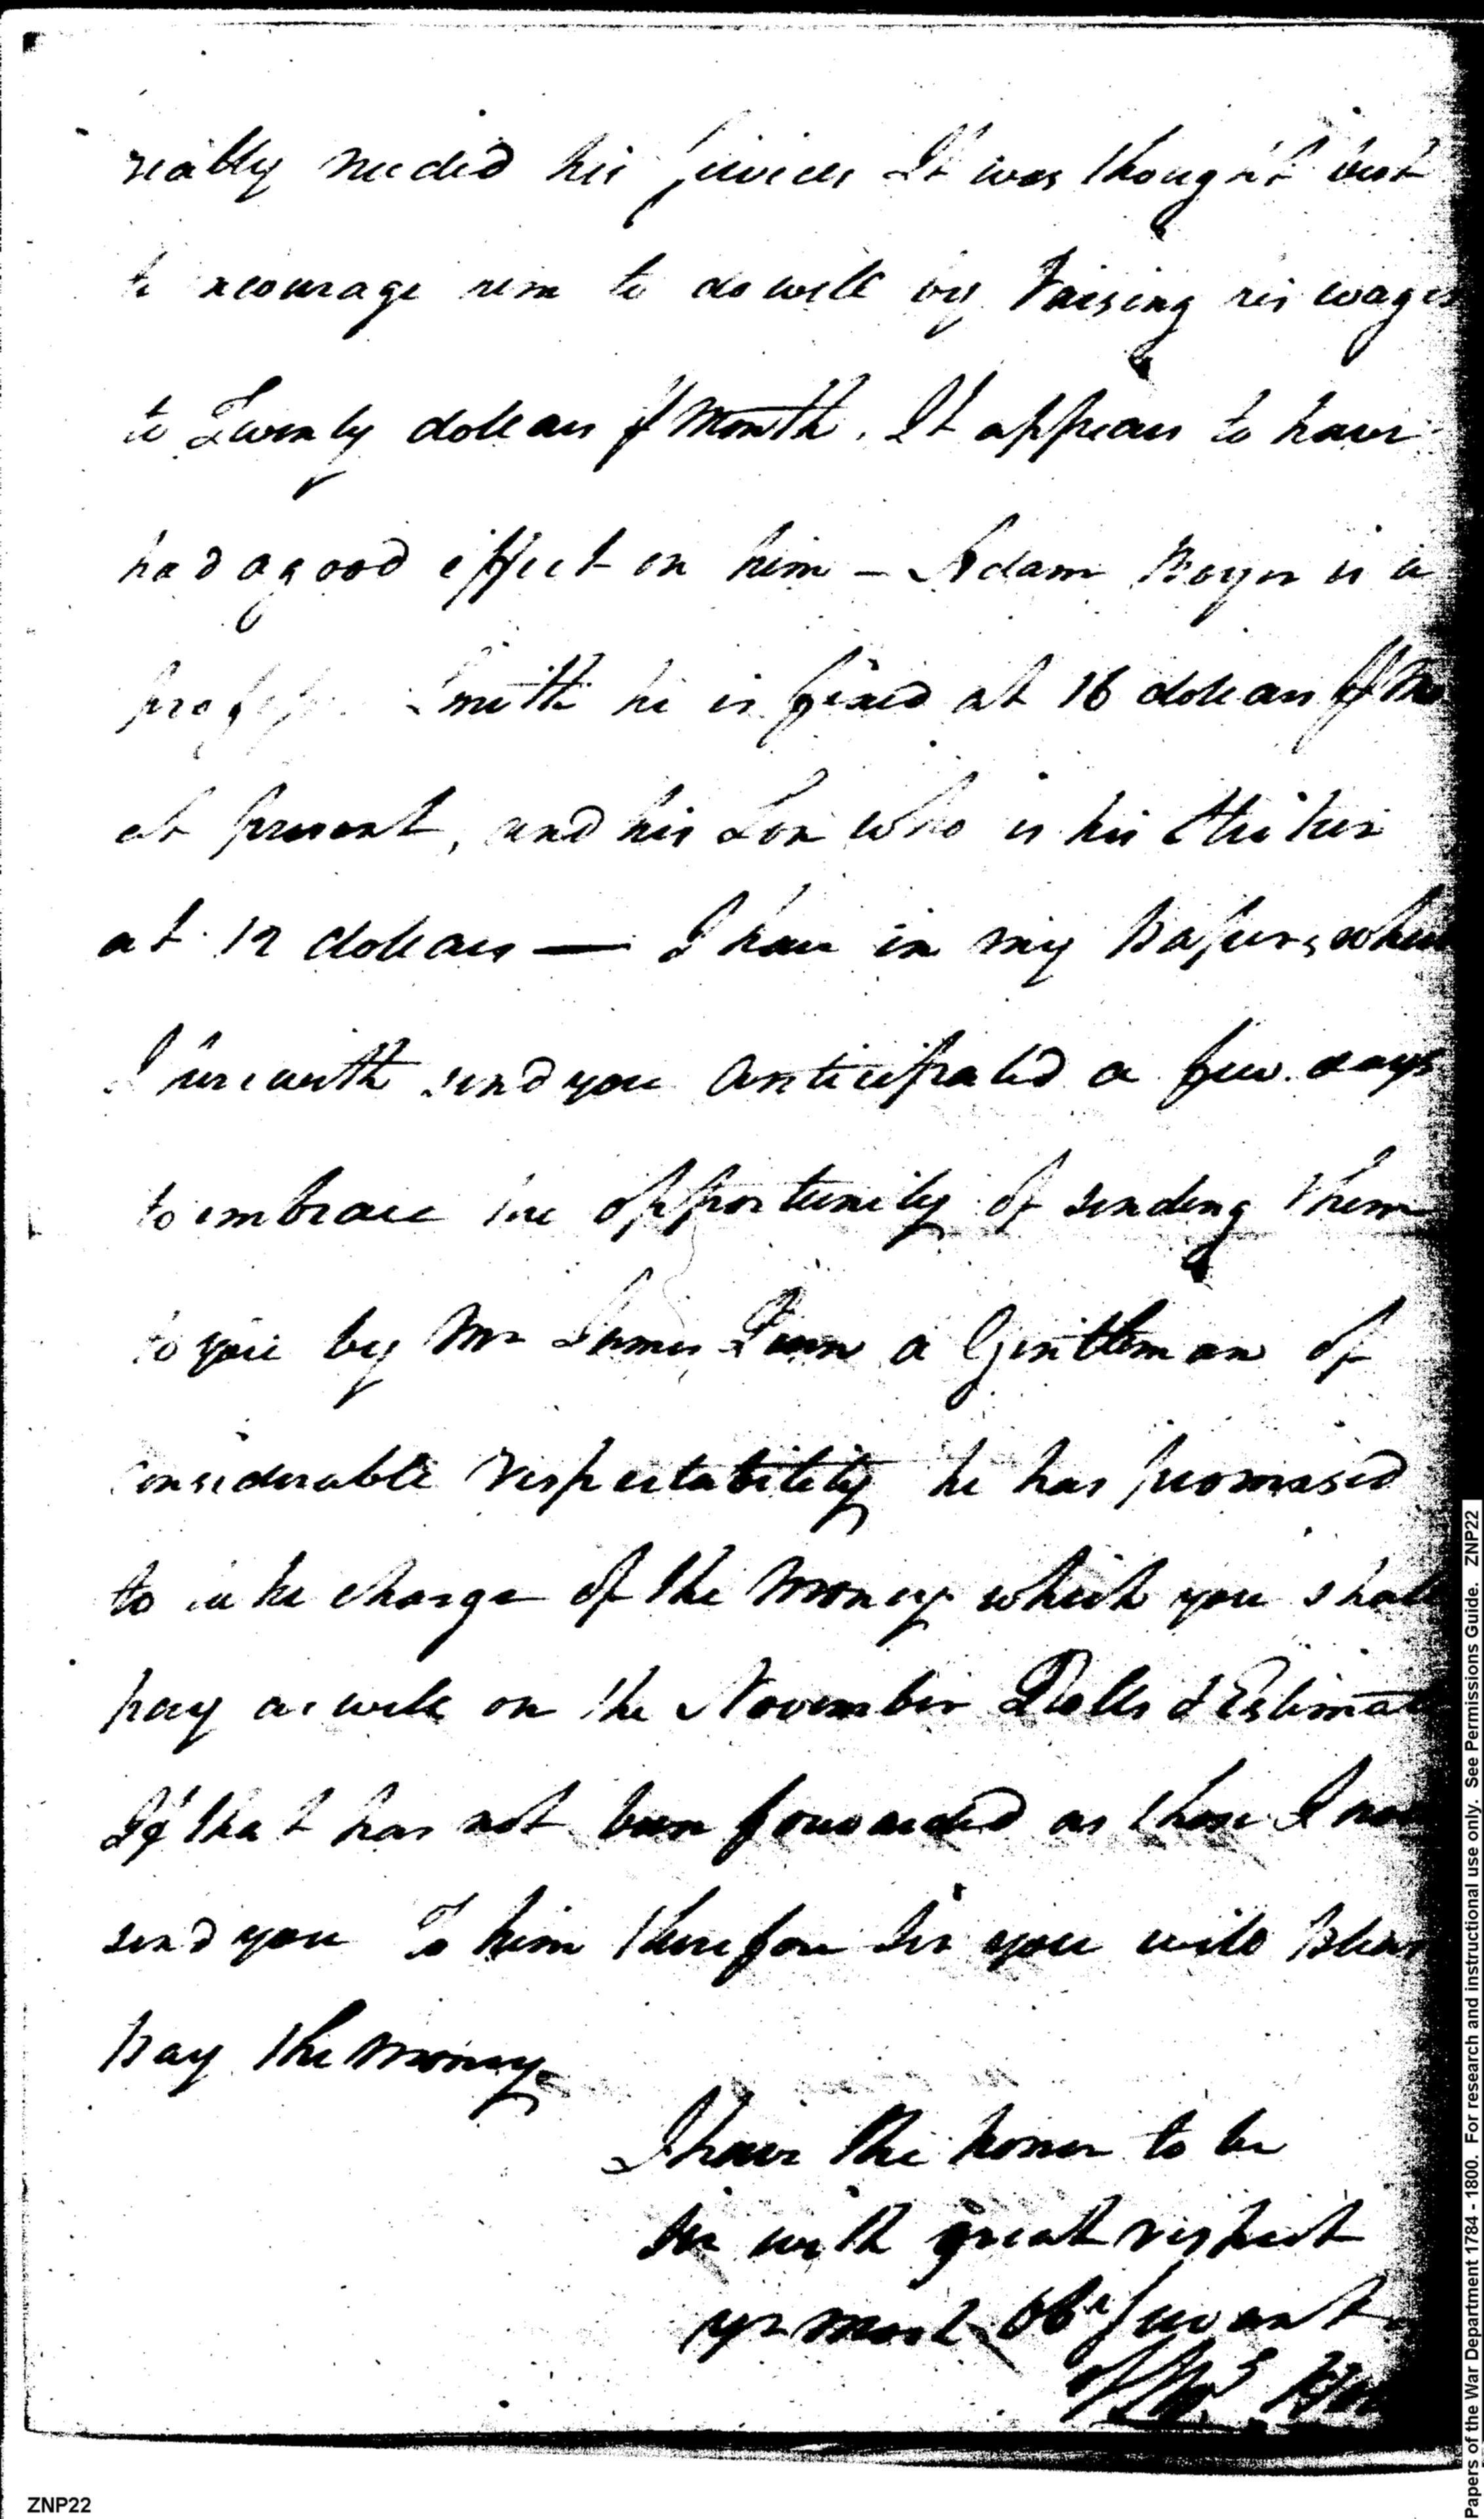 really needed his services It was thought best
to encourage him to do well by Raising his wages
to Twenty dollars ₱ Month. It appears to have
had a good effect on him — Adam Boyer is a
Smith he is fixed at 16 dollars ₱ Mo
at present, and his Son who is his Striker
at 12 dollars — I have in my Papers, which
I herewith send you anticipated a few days
to embrace the opportunity of sending them
to you by Mr James Dunn a Gentleman of
Considerable respectability he has promised
to take charge of the Money which you shall
pay as well on the November Rolls & Estimate
If that has not been forwarded as those I now
send you To him therefore Sir you will Please
Pay the money
I have the honor to be
Sir with great respect
yr most Obt Servant
Papers of the War Department 1784 - 1800. For research and instructional use only. See Permissions Guide. ZNP22
ZNP22